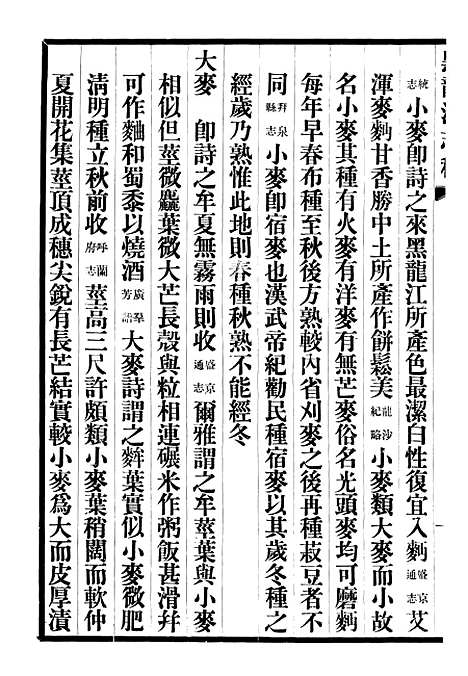 統志小麥卽詩之來黑龍江所產色最潔白性復宜入麪盛京通志艾
渾麥麪甘香勝中土所產作餅鬆美龍沙紀略小麥類大麥而小故
名小麥其種有火麥有洋麥有無芒麥俗名光頭麥均可磨麪
每年早春布種至秋後方熟較內省刈麥之後再種菽豆者不
同拜泉縣志小麥卽宿麥也漢武帝紀勸民種宿麥以其歲冬種之
經歲乃熟惟此地則春種秋熟不能經冬
大麥 卽詩之牟夏無霧雨則收盛京通志爾雅謂之牟莖葉與小麥
相似但莖微麤葉微大芒長殼與粒相連碾米作粥飯甚滑幷
可作麯和蜀黍以燒酒廣羣芳譜大麥詩謂之麰葉實似小麥微肥
淸明種立秋前收呼蘭府志莖高三尺許頗類小麥葉稍闊而軟仲
夏開花集莖頂成穗尖銳有長芒結實較小麥爲大而皮厚漬